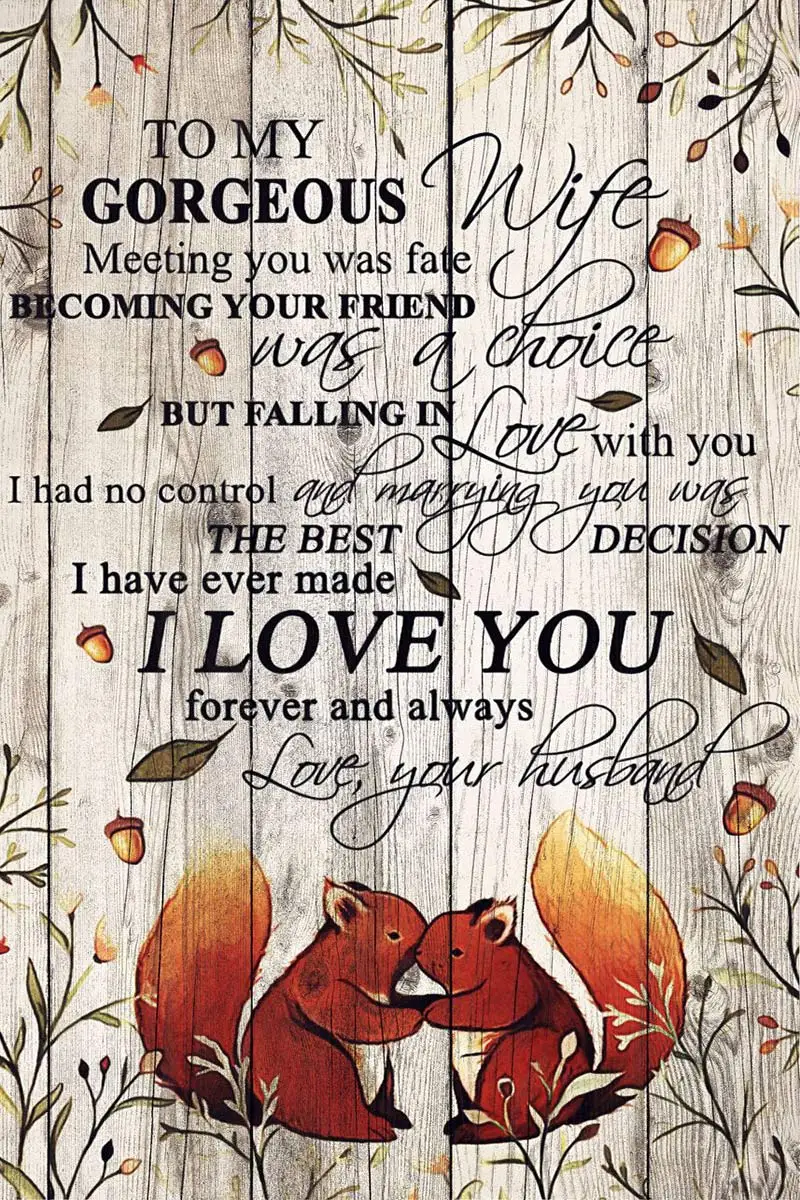 TO MY
GORGEOUS Wife
Meeting you was fate
BECOMING YOUR FRIEND
was a choice
BUT FALLING IN Love with you
I had no control and marrying you was
THE BEST DECISION
I have ever made
I LOVE YOU
forever and always
Love, your husband